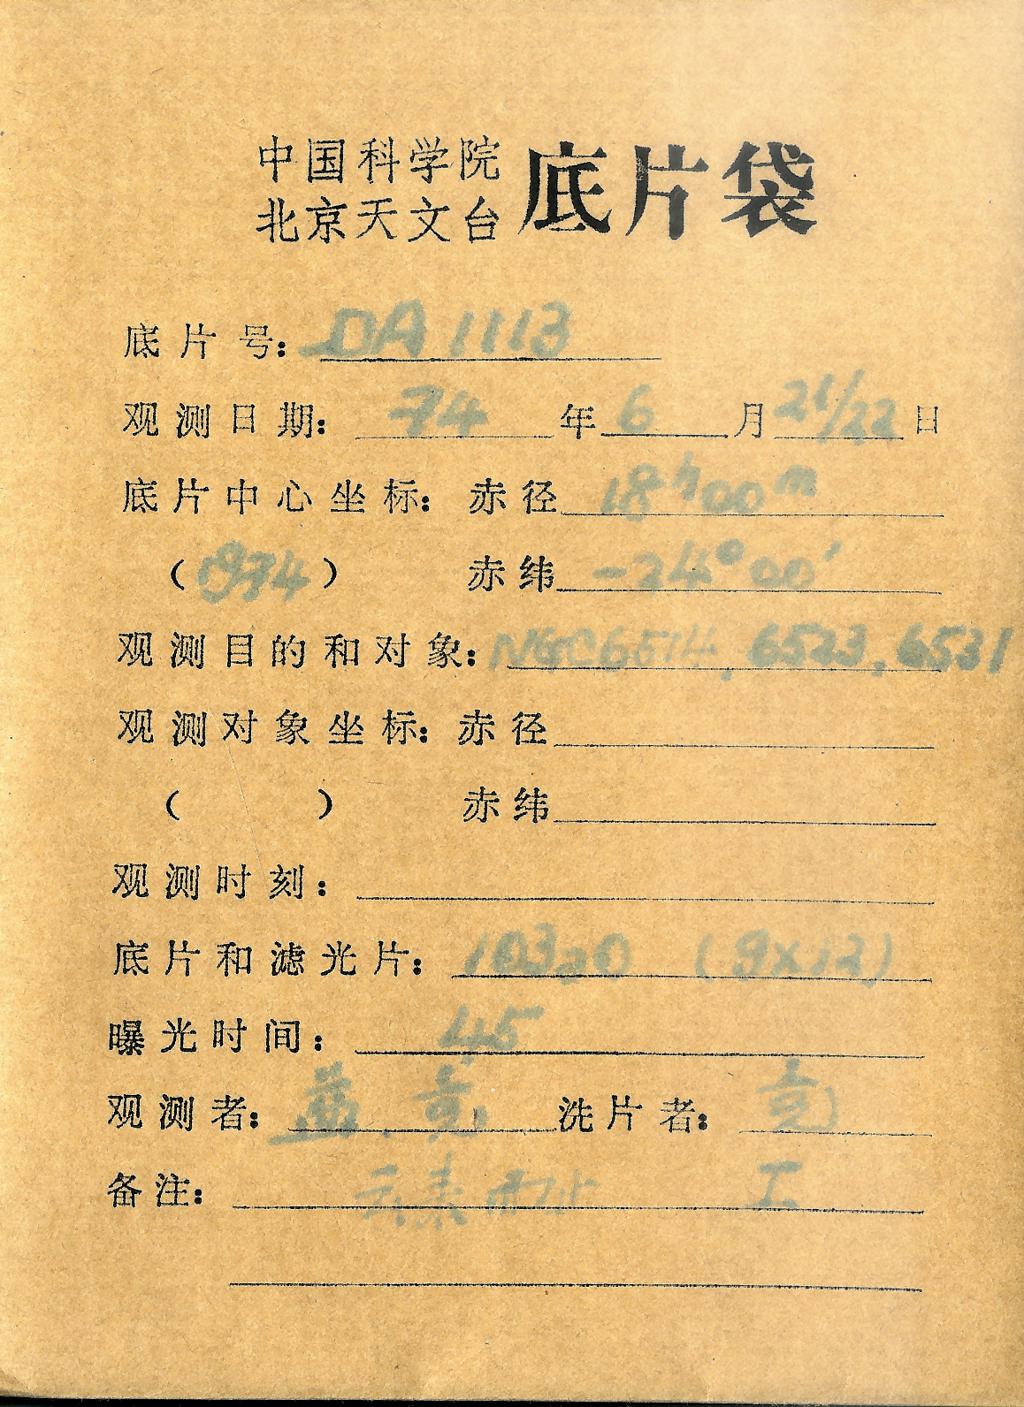 中国科学院
北京天文台 底片袋
底片号: DA 1113
观测日期: 74 年 6 月 21/22 日
底片中心坐标: 赤径 18ʰ00ᵐ
(1974) 赤纬 -24°00′
观测目的和对象: NGC6514, 6523, 6531
观测对象坐标: 赤径
( ) 赤纬
观测时刻:
底片和滤光片: 103aO (9×12)
曝光时间: 45
观测者: 洗片者:
备注: 云素而止 工